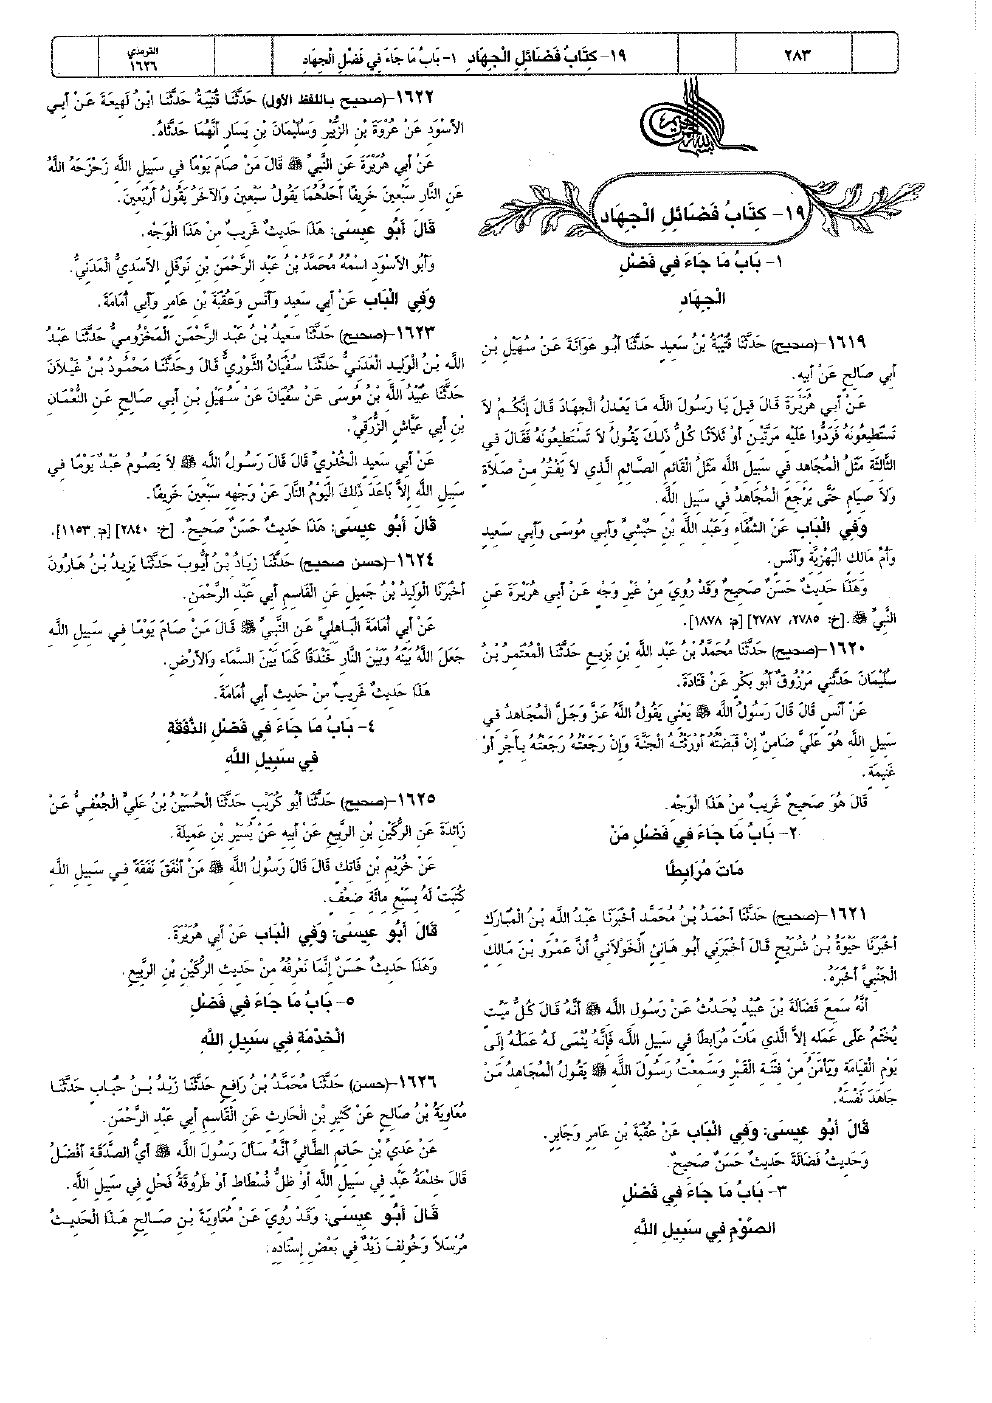 ٢٨٣
١٩- كِتَابُ فَضَائِلِ الْجِهَادِ ١- بَابُ مَا جَاءَ فِي فَضْلِ الْجِهَادِ
الترمذي
١٦٢٦
١٩- كِتَابُ فَضَائِلِ الْجِهَادِ
١- بَابُ مَا جَاءَ فِي فَضْلِ
الْجِهَادِ
١٦١٩-(صحيح) حَدَّثَنَا قُتَيْبَةُ بْنُ سَعِيدٍ حَدَّثَنَا أَبُو عَوَانَةَ عَنْ سُهَيْلِ بْنِ
أَبِي صَالِحٍ عَنْ أَبِيهِ.
عَنْ أَبِي هُرَيْرَةَ قَالَ قِيلَ يَا رَسُولَ اللَّهِ مَا يَعْدِلُ الْجِهَادَ قَالَ إِنَّكُمْ لاَ
تَسْتَطِيعُونَهُ فَرَدُّوا عَلَيْهِ مَرَّتَيْنِ أَوْ ثَلاَثًا كُلُّ ذَلِكَ يَقُولُ لاَ تَسْتَطِيعُونَهُ فَقَالَ فِي
الثَّالِثَةِ مَثَلُ الْمُجَاهِدِ فِي سَبِيلِ اللَّهِ مَثَلُ الْقَائِمِ الصَّائِمِ الَّذِي لاَ يَفْتُرُ مِنْ صَلاَةٍ
وَلاَ صِيَامٍ حَتَّى يَرْجِعَ الْمُجَاهِدُ فِي سَبِيلِ اللَّهِ.
وَفِي الْبَاب عَنْ الشِّفَاءِ وَعَبْدِ اللَّهِ بْنِ حُبْشِيٍّ وَأَبِي مُوسَى وَأَبِي سَعِيدٍ
وَأُمِّ مَالِكٍ الْبَهْزِيَّةِ وَأَنَسٍ.
وَهَذَا حَدِيثٌ حَسَنٌ صَحِيحٌ وَقَدْ رُوِيَ مِنْ غَيْرِ وَجْهٍ عَنْ أَبِي هُرَيْرَةَ عَنِ
النَّبِيِّ ﷺ. [خ: ٢٧٨٥، ٢٧٨٧] [م: ١٨٧٨].
١٦٢٠-(صحيح) حَدَّثَنَا مُحَمَّدُ بْنُ عَبْدِ اللَّهِ بْنِ بَزِيعٍ حَدَّثَنَا الْمُعْتَمِرُ بْنُ
سُلَيْمَانَ حَدَّثَنِي مَرْزُوقٌ أَبُو بَكْرٍ عَنْ قَتَادَةَ.
عَنْ أَنَسٍ قَالَ قَالَ رَسُولُ اللَّهِ ﷺ يَعْنِي يَقُولُ اللَّهُ عَزَّ وَجَلَّ الْمُجَاهِدُ فِي
سَبِيلِ اللَّهِ هُوَ عَلَيَّ ضَامِنٌ إِنْ قَبَضْتُهُ أَوْرَثْتُهُ الْجَنَّةَ وَإِنْ رَجَعْتُهُ رَجَعْتُهُ بِأَجْرٍ أَوْ
غَنِيمَةٍ.
قَالَ هُوَ صَحِيحٌ غَرِيبٌ مِنْ هَذَا الْوَجْهِ.
٢- بَابُ مَا جَاءَ فِي فَضْلِ مَنْ
مَاتَ مُرَابِطًا
١٦٢١-(صحيح) حَدَّثَنَا أَحْمَدُ بْنُ مُحَمَّدٍ أَخْبَرَنَا عَبْدُ اللَّهِ بْنُ الْمُبَارَكِ
أَخْبَرَنَا حَيْوَةُ بْنُ شُرَيْحٍ قَالَ أَخْبَرَنِي أَبُو هَانِئٍ الْخَوْلاَنِيُّ أَنَّ عَمْرَو بْنَ مَالِكٍ
الْجَنْبِيَّ أَخْبَرَهُ.
أَنَّهُ سَمِعَ فَضَالَةَ بْنَ عُبَيْدٍ يُحَدِّثُ عَنْ رَسُولِ اللَّهِ ﷺ أَنَّهُ قَالَ كُلُّ مَيِّتٍ
يُخْتَمُ عَلَى عَمَلِهِ إِلاَّ الَّذِي مَاتَ مُرَابِطًا فِي سَبِيلِ اللَّهِ فَإِنَّهُ يُنْمَى لَهُ عَمَلُهُ إِلَى
يَوْمِ الْقِيَامَةِ وَيَأْمَنُ مِنْ فِتْنَةِ الْقَبْرِ وَسَمِعْتُ رَسُولَ اللَّهِ ﷺ يَقُولُ الْمُجَاهِدُ مَنْ
جَاهَدَ نَفْسَهُ.
قَالَ أَبُو عِيسَى: وَفِي الْبَاب عَنْ عُقْبَةَ بْنِ عَامِرٍ وَجَابِرٍ.
وَحَدِيثُ فَضَالَةَ حَدِيثٌ حَسَنٌ صَحِيحٌ.
٣- بَابُ مَا جَاءَ فِي فَضْلِ
الصَّوْمِ فِي سَبِيلِ اللَّهِ
١٦٢٢-(صحيح باللفظ الأول) حَدَّثَنَا قُتَيْبَةُ حَدَّثَنَا ابْنُ لَهِيعَةَ عَنْ أَبِي
الأَسْوَدِ عَنْ عُرْوَةَ بْنِ الزُّبَيْرِ وَسُلَيْمَانَ بْنِ يَسَارٍ أَنَّهُمَا حَدَّثَاهُ.
عَنْ أَبِي هُرَيْرَةَ عَنِ النَّبِيِّ ﷺ قَالَ مَنْ صَامَ يَوْمًا فِي سَبِيلِ اللَّهِ زَحْزَحَهُ اللَّهُ
عَنِ النَّارِ سَبْعِينَ خَرِيفًا أَحَدُهُمَا يَقُولُ سَبْعِينَ وَالآخَرُ يَقُولُ أَرْبَعِينَ.
قَالَ أَبُو عِيسَى: هَذَا حَدِيثٌ غَرِيبٌ مِنْ هَذَا الْوَجْهِ.
وَأَبُو الأَسْوَدِ اسْمُهُ مُحَمَّدُ بْنُ عَبْدِ الرَّحْمَنِ بْنِ نَوْفَلٍ الأَسَدِيُّ الْمَدَنِيُّ.
وَفِي الْبَاب عَنْ أَبِي سَعِيدٍ وَأَنَسٍ وَعُقْبَةَ بْنِ عَامِرٍ وَأَبِي أُمَامَةَ.
١٦٢٣-(صحيح) حَدَّثَنَا سَعِيدُ بْنُ عَبْدِ الرَّحْمَنِ الْمَخْزُومِيُّ حَدَّثَنَا عَبْدُ
اللَّهِ بْنُ الْوَلِيدِ الْعَدَنِيُّ حَدَّثَنَا سُفْيَانُ الثَّوْرِيُّ قَالَ وحَدَّثَنَا مَحْمُودُ بْنُ غَيْلاَنَ
حَدَّثَنَا عُبَيْدُ اللَّهِ بْنُ مُوسَى عَنْ سُفْيَانَ عَنْ سُهَيْلِ بْنِ أَبِي صَالِحٍ عَنِ النُّعْمَانِ
بْنِ أَبِي عَيَّاشٍ الزُّرَقِيِّ.
عَنْ أَبِي سَعِيدٍ الْخُدْرِيِّ قَالَ قَالَ رَسُولُ اللَّهِ ﷺ لاَ يَصُومُ عَبْدٌ يَوْمًا فِي
سَبِيلِ اللَّهِ إِلاَّ بَاعَدَ ذَلِكَ الْيَوْمُ النَّارَ عَنْ وَجْهِهِ سَبْعِينَ خَرِيفًا.
قَالَ أَبُو عِيسَى: هَذَا حَدِيثٌ حَسَنٌ صَحِيحٌ. [خ: ٢٨٤٠] [م: ١١٥٣].
١٦٢٤-(حسن صحيح) حَدَّثَنَا زِيَادُ بْنُ أَيُّوبَ حَدَّثَنَا يَزِيدُ بْنُ هَارُونَ
أَخْبَرَنَا الْوَلِيدُ بْنُ جَمِيلٍ عَنِ الْقَاسِمِ أَبِي عَبْدِ الرَّحْمَنِ.
عَنْ أَبِي أُمَامَةَ الْبَاهِلِيِّ عَنِ النَّبِيِّ ﷺ قَالَ مَنْ صَامَ يَوْمًا فِي سَبِيلِ اللَّهِ
جَعَلَ اللَّهُ بَيْنَهُ وَبَيْنَ النَّارِ خَنْدَقًا كَمَا بَيْنَ السَّمَاءِ وَالأَرْضِ.
هَذَا حَدِيثٌ غَرِيبٌ مِنْ حَدِيثِ أَبِي أُمَامَةَ.
٤- بَابُ مَا جَاءَ فِي فَضْلِ النَّفَقَةِ
فِي سَبِيلِ اللَّهِ
١٦٢٥-(صحيح) حَدَّثَنَا أَبُو كُرَيْبٍ حَدَّثَنَا الْحُسَيْنُ بْنُ عَلِيٍّ الْجُعْفِيُّ عَنْ
زَائِدَةَ عَنِ الرُّكَيْنِ بْنِ الرَّبِيعِ عَنْ أَبِيهِ عَنْ يُسَيْرِ بْنِ عَمِيلَةَ.
عَنْ خُرَيْمِ بْنِ فَاتِكٍ قَالَ قَالَ رَسُولُ اللَّهِ ﷺ مَنْ أَنْفَقَ نَفَقَةً فِي سَبِيلِ اللَّهِ
كُتِبَتْ لَهُ بِسَبْعِ مِائَةِ ضِعْفٍ.
قَالَ أَبُو عِيسَى: وَفِي الْبَاب عَنْ أَبِي هُرَيْرَةَ.
وَهَذَا حَدِيثٌ حَسَنٌ إِنَّمَا نَعْرِفُهُ مِنْ حَدِيثِ الرُّكَيْنِ بْنِ الرَّبِيعِ.
٥- بَابُ مَا جَاءَ فِي فَضْلِ
الْخِدْمَةِ فِي سَبِيلِ اللَّهِ
١٦٢٦-(حسن) حَدَّثَنَا مُحَمَّدُ بْنُ رَافِعٍ حَدَّثَنَا زَيْدُ بْنُ حُبَابٍ حَدَّثَنَا
مُعَاوِيَةُ بْنُ صَالِحٍ عَنْ كَثِيرِ بْنِ الْحَارِثِ عَنِ الْقَاسِمِ أَبِي عَبْدِ الرَّحْمَنِ.
عَنْ عَدِيِّ بْنِ حَاتِمٍ الطَّائِيِّ أَنَّهُ سَأَلَ رَسُولَ اللَّهِ ﷺ أَيُّ الصَّدَقَةِ أَفْضَلُ
قَالَ خِدْمَةُ عَبْدٍ فِي سَبِيلِ اللَّهِ أَوْ ظِلُّ فُسْطَاطٍ أَوْ طَرُوقَةُ فَحْلٍ فِي سَبِيلِ اللَّهِ.
قَالَ أَبُو عِيسَى: وَقَدْ رُوِيَ عَنْ مُعَاوِيَةَ بْنِ صَالِحٍ هَذَا الْحَدِيثُ
مُرْسَلاً وَخُولِفَ زَيْدٌ فِي بَعْضِ إِسْنَادِهِ.